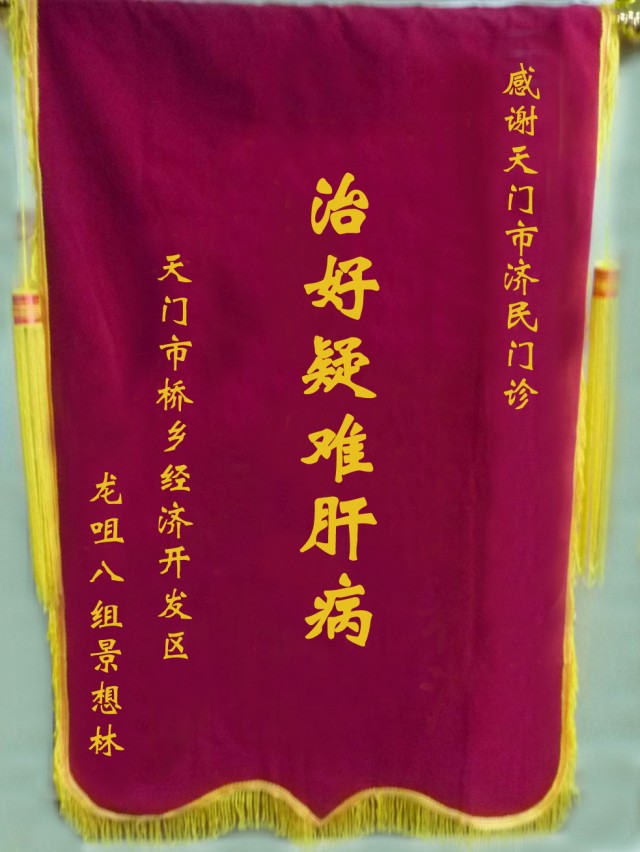 感谢天门市济民门诊
治好疑难肝病
天门市桥乡经济开发区
龙咀八组景想林